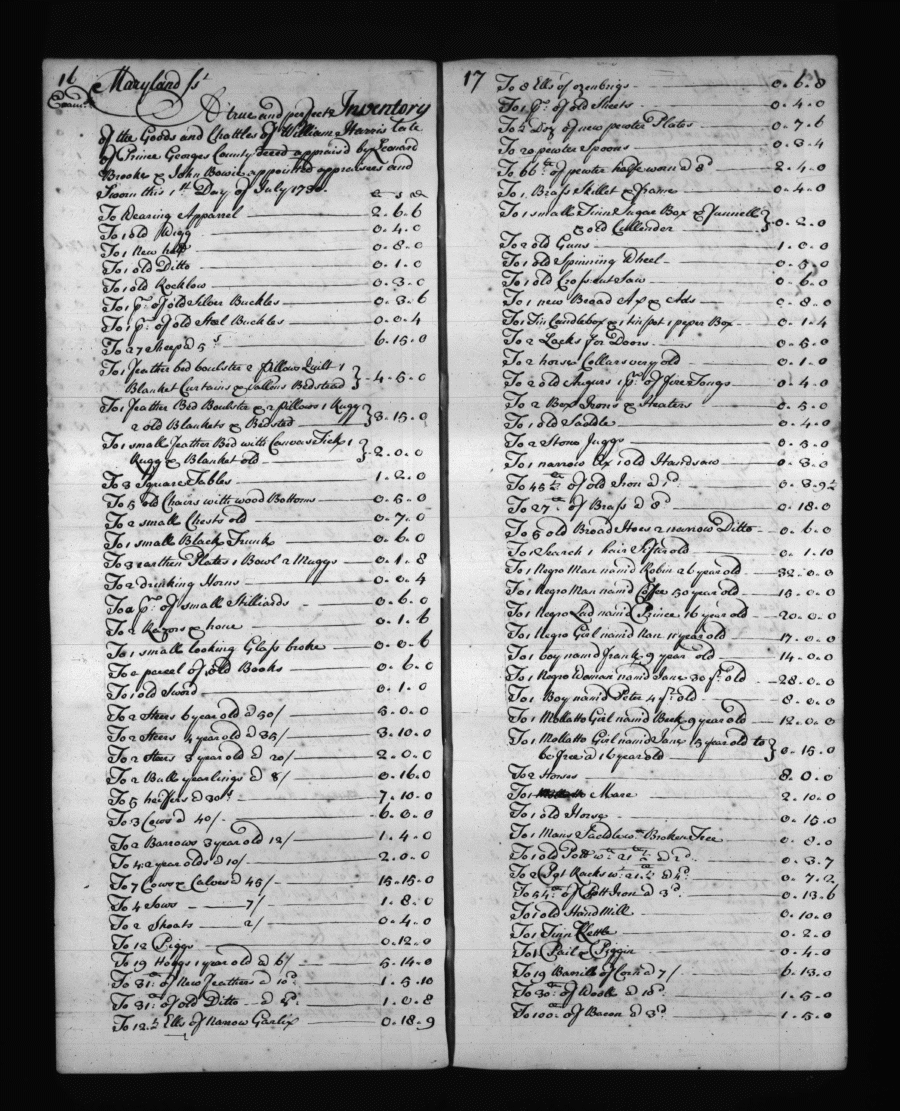 16
Maryland ss
A true and perfect Inventory
of the Goods and Chattles of William Harris late
of Prince Georges County Deced appraisd by Leonard
Brooke & John Bowie appointed appraisers and
Sworn this 1st Day of July 173
£ s d
To Wearing Apparrel 2.6.6
To 1 old Wigg 0.4.0
To 1 New hatt 0.8.0
To 1 old Ditto 0.1.0
To 1 old Rocklow 0.3.0
To 1 pr. of old Silver Buckles 0.3.6
To 1 pr. of old Steel Buckles 0.0.4
To 27 Sheep @ 5s 6.15.0
To 1 feather bed boulster 2 pillows Quilt 1
Blanket Curtains & vallens Bedstead 4.5.0
To 1 feather Bed Boulster & 2 pillows 1 Rugg
2 old Blankets & Bedsted 3.15.0
To 1 small feather Bed with Canvas Tick 1
Rugg & Blanket old 2.0.0
To 3 Square Tables 1.2.0
To 5 old Chairs with wood Bottoms 0.5.0
To 2 small Chests old 0.7.0
To 1 small Black Trunk 0.6.0
To 3 earthen Plates 1 Bowl 2 Muggs 0.1.8
To 2 drinking Horns 0.0.4
To a pr. of small Stilliards 0.6.0
To 2 Razors & hone 0.1.6
To 1 small looking Glass broke 0.0.6
To a parcel of old Books 0.6.0
To 1 old Sword 0.1.0
To 2 Steers 6 year old @ 50/ 5.0.0
To 2 Steers 4 year old @ 35/ 3.10.0
To 2 Steers 3 year old @ 20/ 2.0.0
To 2 Bulls yearlings @ 8/ 0.16.0
To 5 heiffers @ 30s 7.10.0
To 3 Cows @ 40/ 6.0.0
To 2 Barrows 3 year old 12/ 1.4.0
To 4: 2 year olds @ 10/ 2.0.0
To 7 Cows & Calves @ 45/ 15.15.0
To 4 Sows 7/ 1.8.0
To 2 Shoats 2/ 0.4.0
To 12 Piggs 0.12.0
To 19 Hoggs 1 year old @ 6/ 5.14.0
To 31 lb of New feathers @ 10d. 1.5.10
To 31 lb of old Ditto @ 8d. 1.0.8
To 12½ Ells of Narrow Garlix 0.18.9
17
To 8 Ells of ozenbrigs 0.6.8
To 1 pr. of old Sheets 0.4.0
To ½ Doz of new pewter Plates 0.7.6
To 20 pewter Spoons 0.3.4
To 66 lb of pewter halfe worn @ 8d 2.4.0
To 1 Brass Skillet & frame 0.4.0
To 1 small Tinn Sugar Box & funnell
& old Cullender 0.2.0
To 2 old Guns 1.0.0
To 1 old Spinning Wheel 0.5.0
To 1 old Cross cut Saw 0.6.0
To 1 new Broad Ax & Ads 0.8.0
To 1 Tin Candlebox & 1 tin pot 1 peper Box 0.1.4
To 2 Locks for Doors 0.5.0
To 2 horse Collars very old 0.1.0
To 2 old Augurs 1 pr. of fire Tongs 0.4.0
To 2 Box Irons & Heaters 0.5.0
To 1 old Saddle 0.4.0
To 2 Stone Juggs 0.3.0
To 1 narrow Ax 1 old Handsaw 0.3.0
To 45½ lb of old Iron @ 1d. 0.3.9½
To 27 lb of Brass @ 8d 0.18.0
To 5 old Broad Hoes 2 narrow Ditto 0.6.0
To 1 Search 1 hair Sifter old 0.1.10
To 1 Negro Man namd Robin 26 year old 32.0.0
To 1 Negro Man namd Coffee 50 year old 15.0.0
To 1 Negro Lad namd Prince 16 year old 20.0.0
To 1 Negro Girl namd Nan 11 year old 17.0.0
To 1 boy namd Frank 9 year old 14.0.0
To 1 Negro Woman namd Jane 30 yr. old 28.0.0
To 1 Boy namd Peter 4 yr. old 8.0.0
To 1 Mollatto Girl namd Beck 9 year old 12.0.0
To 1 Mollatto Girl namd Jane 15 year old to
be free at 16 year old 0.15.0
To 2 Horses 8.0.0
To 1 Mare 2.10.0
To 1 old Horse 0.15.0
To 1 Mans Saddle wth Broken Tree 0.8.0
To 1 old Pott wt. 21½ lb @ 2d. 0.3.7
To 2 Pot Racks wt. 21½ @ 4d. 0.7.2
To 54 lb of Pott Iron @ 3d. 0.13.6
To 1 old Hand Mill 0.10.0
To 1 Tinn Kettle 0.2.0
To 1 Pail & Piggin 0.4.0
To 19 Barrills of Corn @ 7/ 6.13.0
To 30 lb of Wooll @ 10d. 1.5.0
To 100 lb of Bacon @ 3d 1.5.0